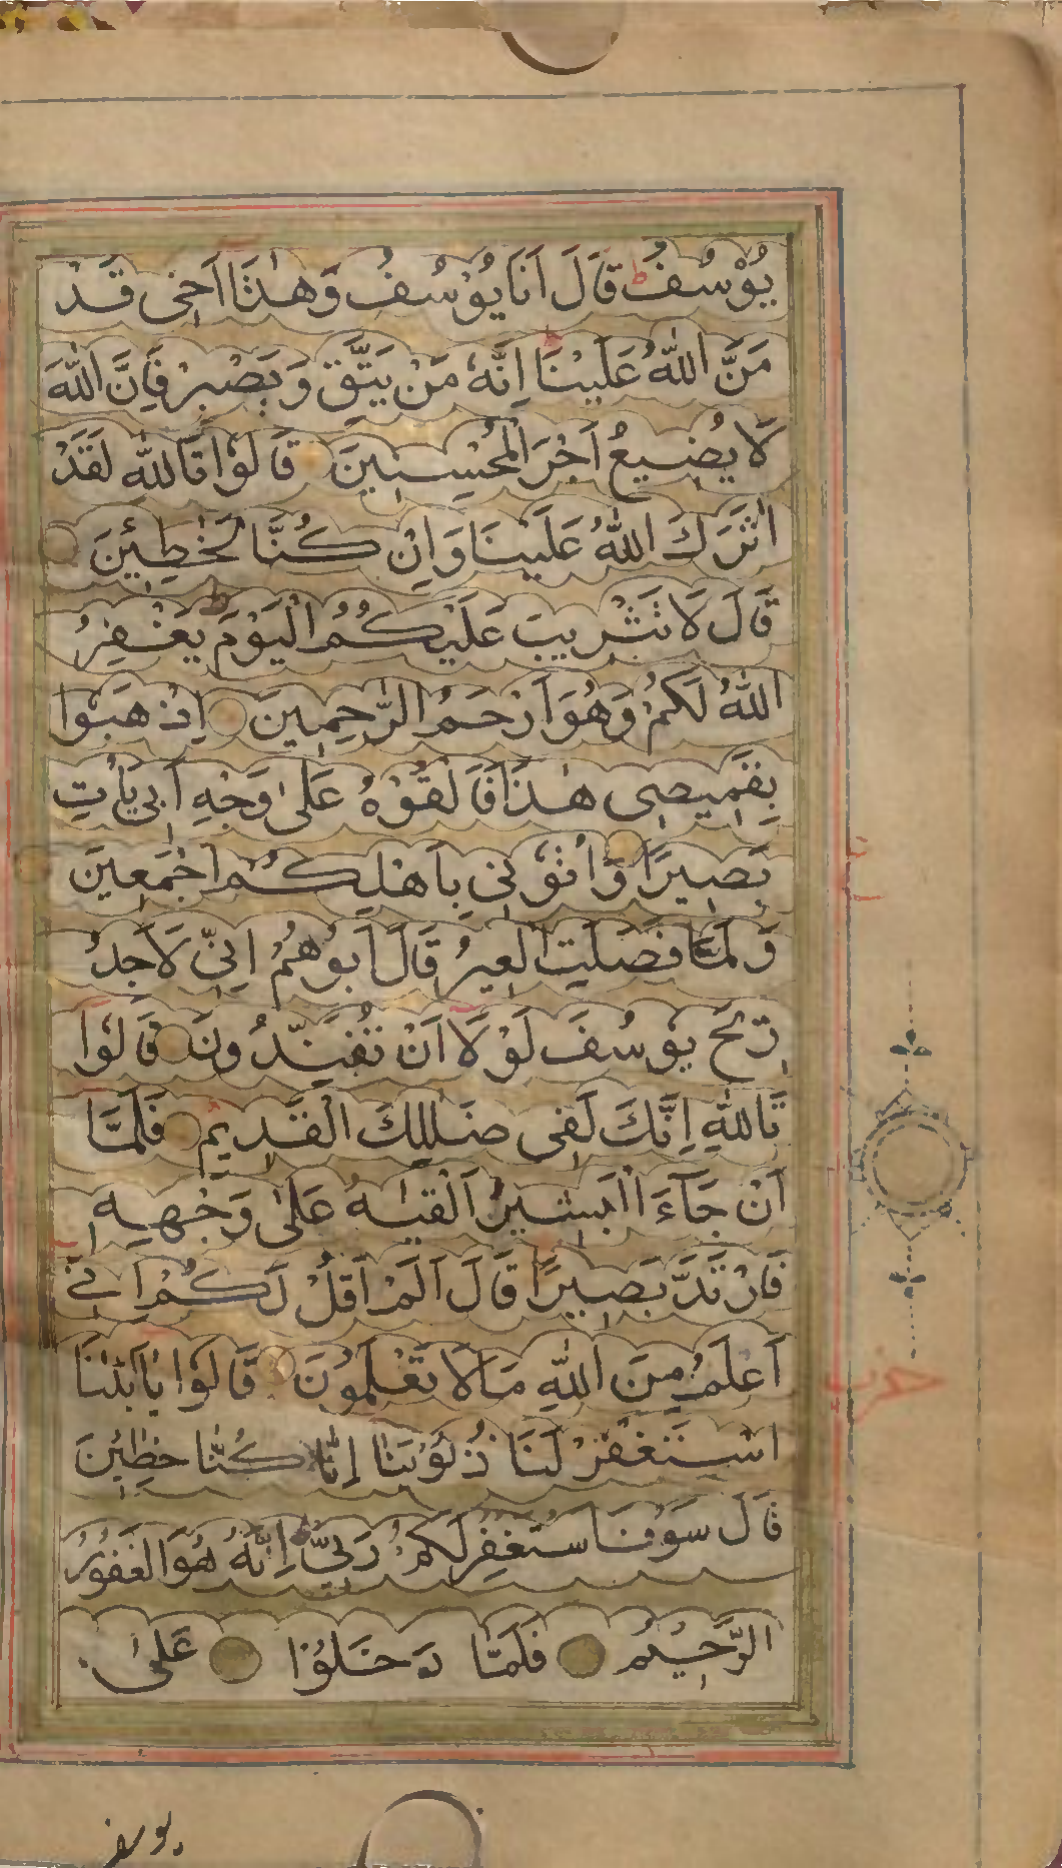 يُوْسُفُ ط قَالَ اَنَا يُوْسُفُ وَهٰذَا اَخِى قَدْ
مَنَّ اللّٰهُ عَلَيْنَا ط اِنَّهٗ مَنْ يَتَّقِ وَيَصْبِرْ فَاِنَّ اللّٰهَ
لَا يُضِيعُ اَجْرَ الْمُحْسِنِينَ قَالُوْا تَاللّٰهِ لَقَدْ
اٰثَرَكَ اللّٰهُ عَلَيْنَا وَاِنْ كُنَّا لَخٰطِئِينَ
قَالَ لَا تَثْرِيبَ عَلَيْكُمُ الْيَوْمَ ط يَغْفِرُ
اللّٰهُ لَكُمْ وَهُوَ اَرْحَمُ الرّٰحِمِينَ اِذْهَبُوْا
بِقَمِيصِى هٰذَا فَاَلْقُوْهُ عَلٰى وَجْهِ اَبِى يَاْتِ
بَصِيرًا وَاْتُوْنِى بِاَهْلِكُمْ اَجْمَعِينَ
وَلَمَّا فَصَلَتِ الْعِيرُ قَالَ اَبُوهُمْ اِنِّى لَاَجِدُ
رِيحَ يُوْسُفَ لَوْلَا اَنْ تُفَنِّدُونِ قَالُوْا
تَاللّٰهِ اِنَّكَ لَفِى ضَلٰلِكَ الْقَدِيمِ فَلَمَّا
اَنْ جَآءَ الْبَشِيرُ اَلْقٰىهُ عَلٰى وَجْهِهٖ
فَارْتَدَّ بَصِيرًا قَالَ اَلَمْ اَقُلْ لَكُمْ اِنِّى
اَعْلَمُ مِنَ اللّٰهِ مَا لَا تَعْلَمُونَ قَالُوْا يٰاَبَانَا
اسْتَغْفِرْ لَنَا ذُنُوْبَنَا اِنَّا كُنَّا خٰطِئِينَ
قَالَ سَوْفَ اَسْتَغْفِرُ لَكُمْ رَبِّى اِنَّهٗ هُوَ الْغَفُوْرُ
الرَّحِيْمُ فَلَمَّا دَخَلُوْا عَلٰى
حزب
يوسف